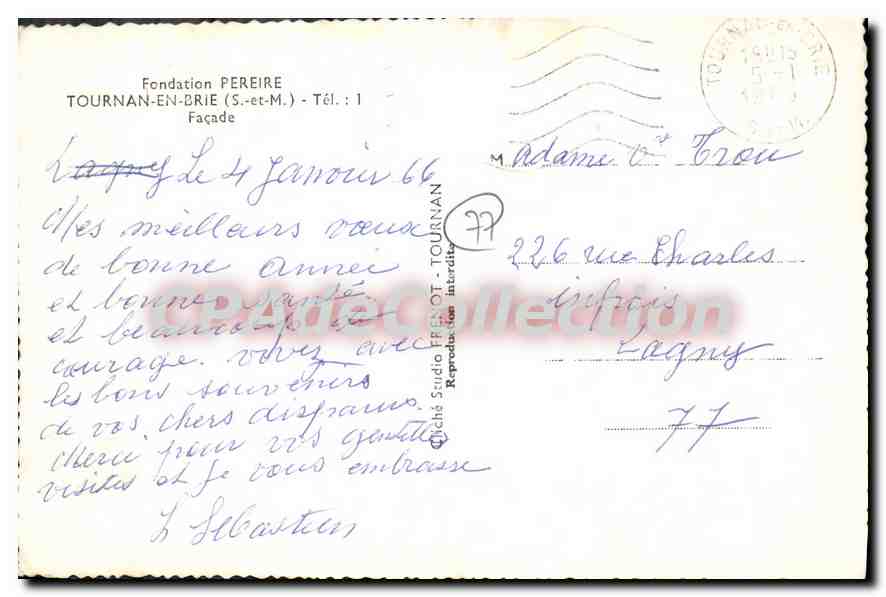 Fondation PEREIRE
TOURNAN-EN-BRIE (S.-et-M.) - Tél. : 1
Façade
Lagny Le 4 Janvier 66
Mes meilleurs vœux
de bonne année
et bonne santé
et beaucoup de
courage. vivez avec
les bons souvenirs
de vos chers disparus.
Merci pour vos gentilles
visites et je vous embrasse
Sébastien
Cliché Studio FRENOT - TOURNAN
Reproduction interdite
77
TOURNAN-EN-BRIE
Madame Vve Trou
226 rue Charles
Lagny
77
CPAdeCollection